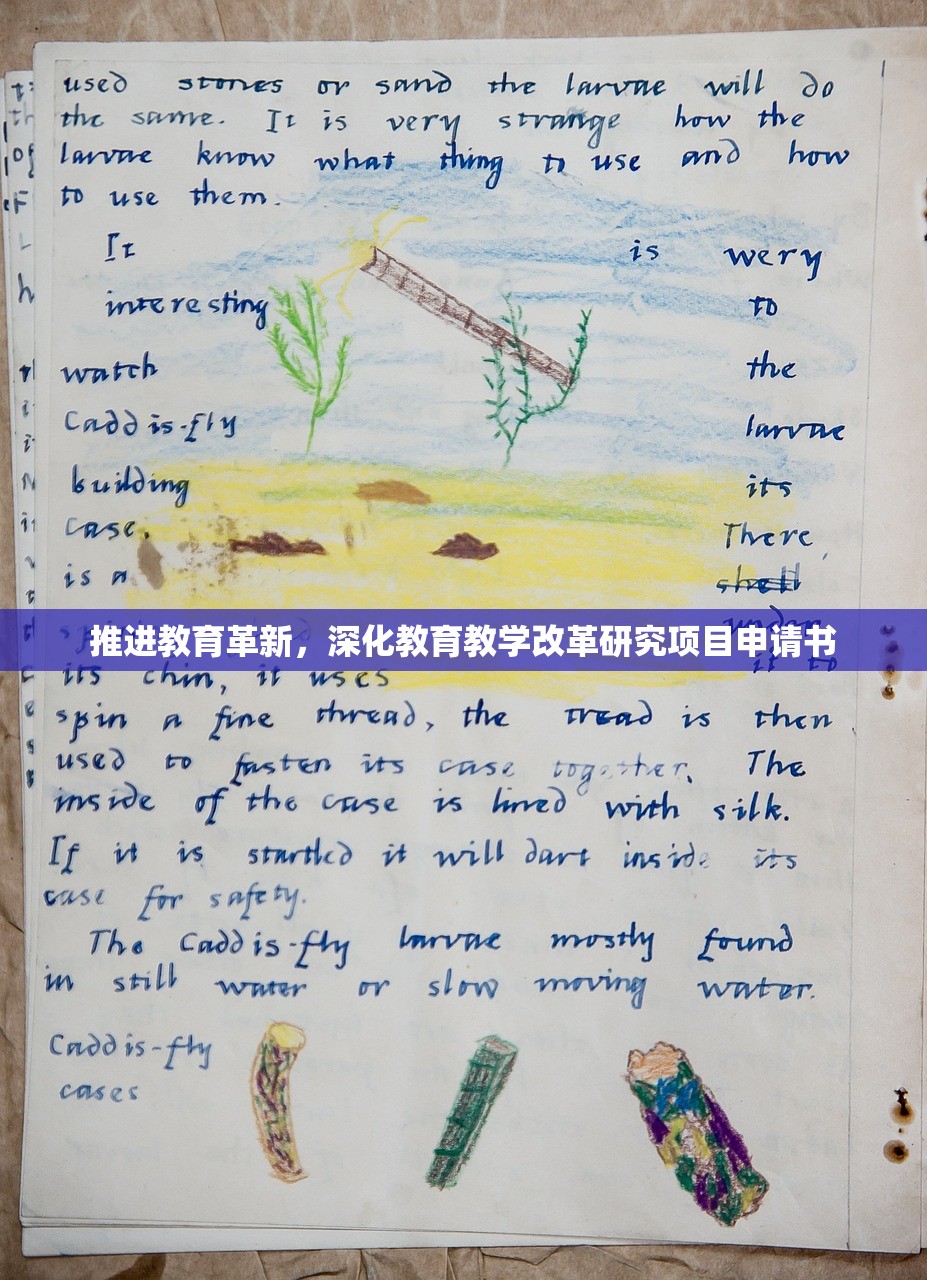 used stones or sand the larvae will do
the same. It is very strange how the
larvae know what thing to use and how
to use them.
It is wery
interesting to
watch the
Caddis-fly larvae
building its
case. There
is a shell
under
推进教育革新，深化教育教学改革研究项目申请书
its chin, it uses it to
spin a fine thread, the tread is then
used to fasten its case together. The
inside of the case is lined with silk.
If it is startled it will dart inside its
case for safety.
The Caddis-fly larvae mostly found
in still water or slow moving water.
Caddis-fly
cases